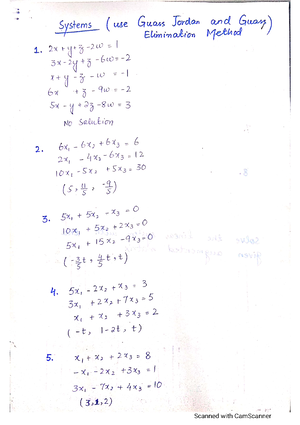 Systems (use Guass Jordan and Guass)
Elimination Method
1. 2x+y+z-2w = 1
3x-2y+z-6w=-2
x+y-z-w = -1
6x +z-9w = -2
5x-y+2z-8w = 3
No Solution
2. 6x₁-6x₂+6x₃ = 6
2x₁ -4x₃-6x₃=12
10x₁-5x₂+5x₃=30
3. 5x₁+5x₂-x₃=0
10x₁+5x₂+2x₃=0
5x₁+15x₂-9x₃=0
(-3/5t, 4/5t, t)
4. 5x₁-2x₂+x₃ = 3
3x₁+2x₂+7x₃=5
x₁+x₂+3x₃=2
(-t, 1-2t, t)
5. x₁+x₂+2x₃=8
-x₁-2x₂+3x₃=1
3x₁-7x₂+4x₃=10
(3,1,2)
Scanned with CamScanner